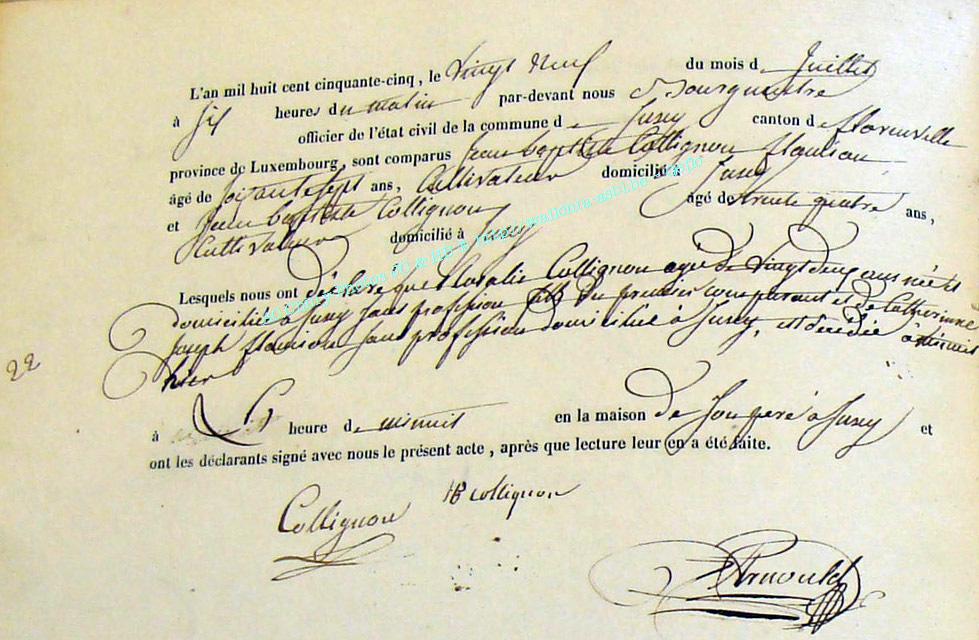 L'an mil huit cent cinquante-cinq, le vingt neuf du mois d juillet
à six heures du matin par-devant nous bourgmestre
officier de l'état civil de la commune d Suxy canton de florenville
province de Luxembourg, sont comparus Jean baptiste Collignon
âgé de soixante sept ans, Cultivateur domicilié à Suxy
et Jean baptiste Collignon âgé de trente quatre ans,
Cultivateur domicilié à Suxy
Lesquels nous ont déclaré que Collignon agée de vingt deux ans née et
domiciliée à Suxy sans profession fille du premier comparant et de Catherinne
joseph sans profession domiciliée à Suxy, est décédée à minuit
hier
22
à heure de minuit en la maison de son pere à Suxy et
ont les déclarants signé avec nous le présent acte, après que lecture leur en a été faite.
Collignon JB collignon
Arnould